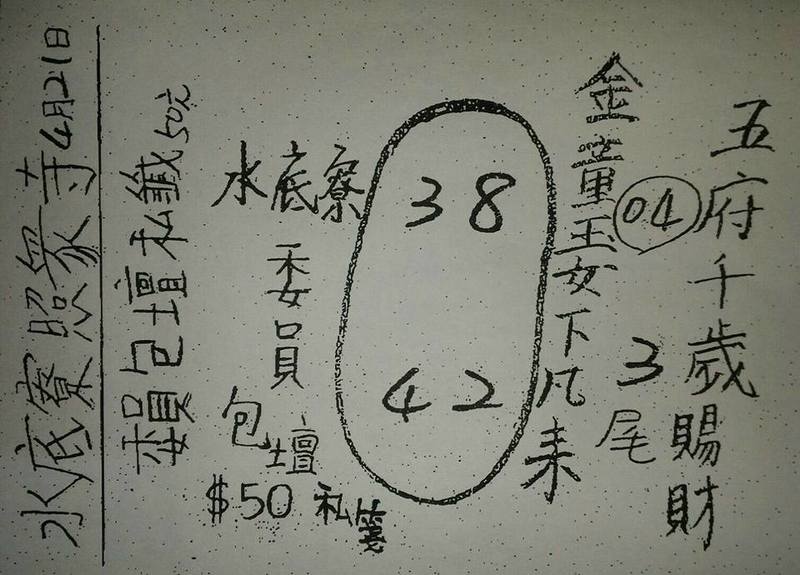 五府千歲賜財
04
3尾
金童玉女下凡來
38
42
水底寮
委員
包壇
$50 私箋
賴包壇私籤50元
水底寮照眾寺4月21日